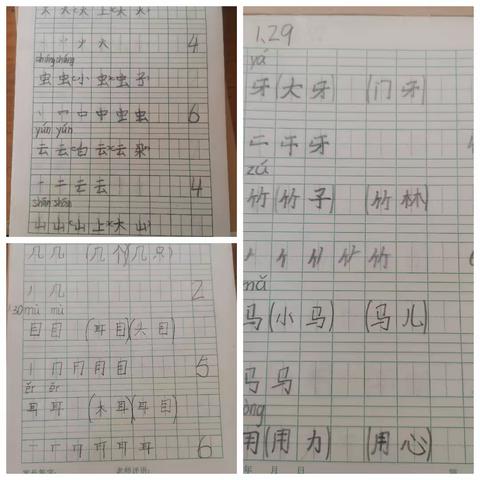 火 火(大火)
丶 丷 火 火 4
chóng chóng
虫 虫(小虫)(虫子)
丨 口 中 虫 虫 6
yún yún
云 云(白云)(云朵)
一 二 云 云 4
shān shān
山 山(山上)(大山)
几 几 (几个)(几只)
丿 几 2
1.30 mù mù
目 目 (耳目)(大目)
丨 冂 月 月 目 5
ěr ěr
耳 耳 (木耳)(耳目)
一 丅 丌 耳 耳 耳 6
老师评语:
1.29
yá
牙(大牙) (门牙)
二 于 牙
zú
竹(竹子) (竹林)
竹
mǎ
马(小马) (马儿)
马 马
òng
用(用力) (用心)
年 月 日